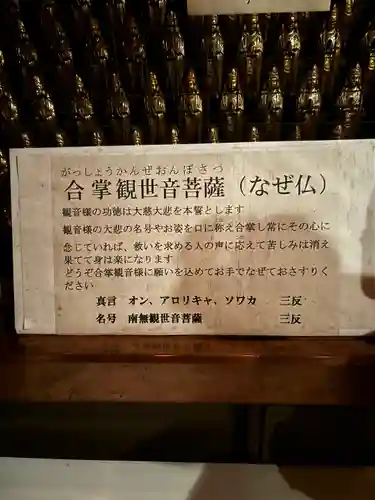 がっしょうかんぜおんぼさつ
合掌観世音菩薩（なぜ仏）
観音様の功徳は大慈大悲を本誓とします
観音様の大悲の名号やお姿を口に称え合掌し常にその心に
念じていれば、救いを求める人の声に応えて苦しみは消え
果てて身は楽になります
どうぞ合掌観音様に願いを込めてお手でなぜておさすりく
ださい
真言　オン、アロリキャ、ソワカ　三反
名号　南無観世音菩薩　三反